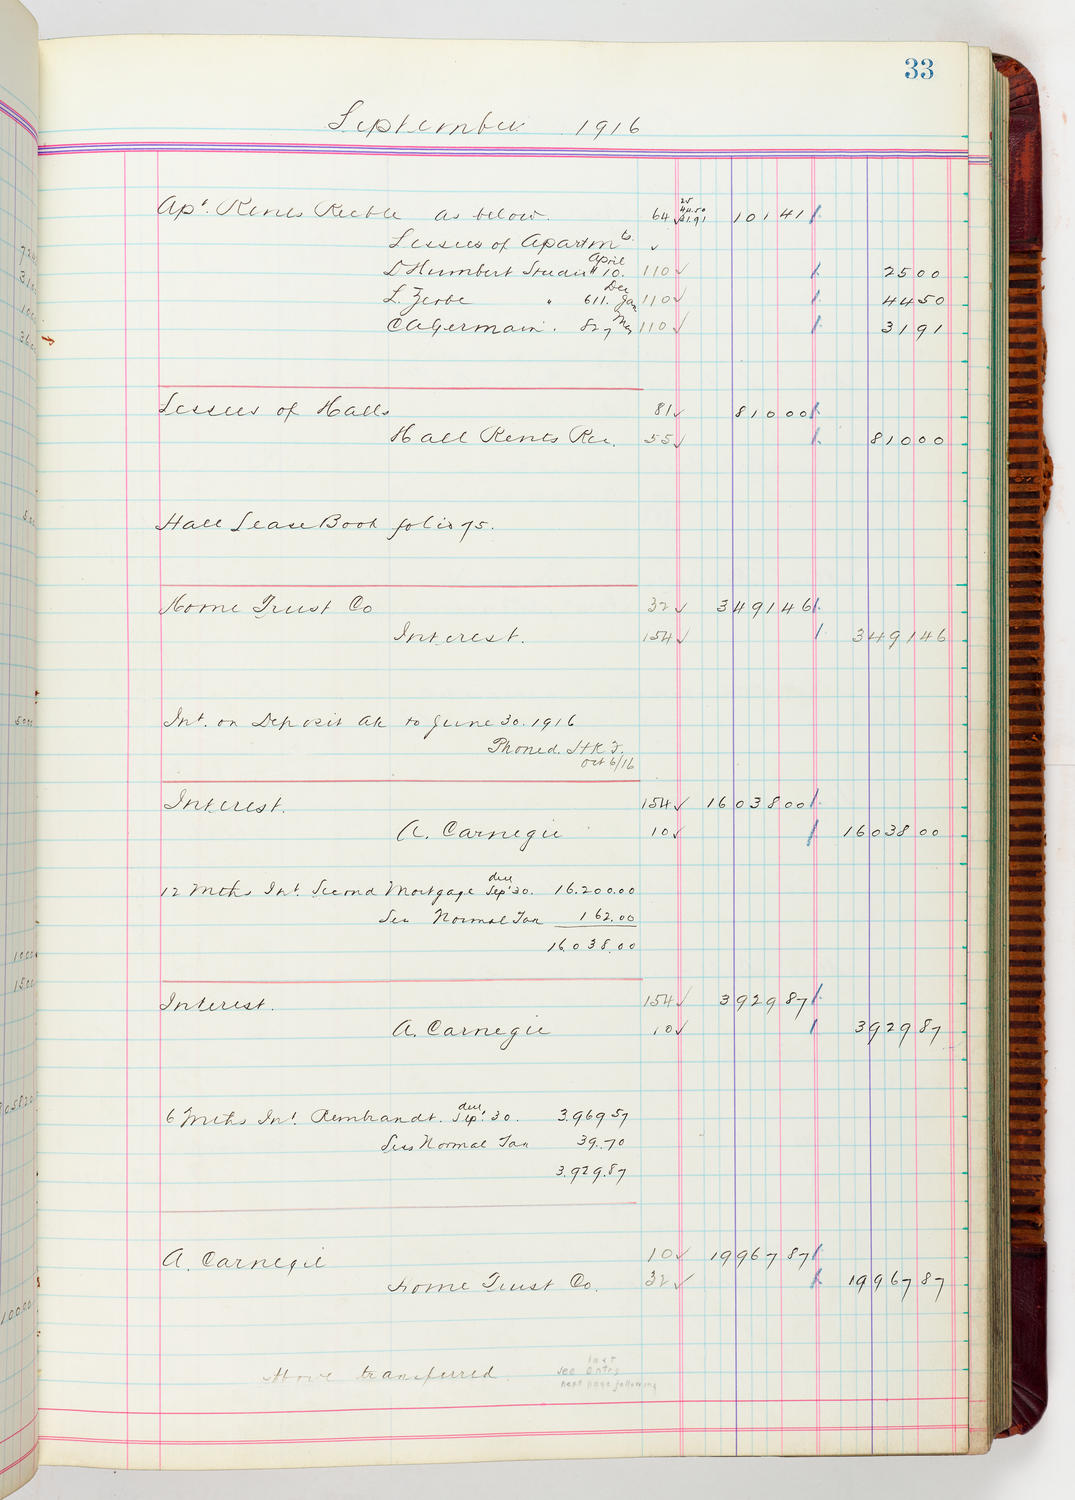 33
September 1916
Apt. Rents Recble as below. 64 ✓ 25 44.50 31.91 101 41
Lessees of Apartmts. ✓
D Humbert Studio # 10. April 110 ✓ 25 00
L. Zerbe " 611. Dec Jan 110 ✓ 44 50
C A Germain . 827 May 110 ✓ 31 91
Lessees of Halls 81 ✓ 810 00
Hall Rents Rec. 55 ✓ 810 00
Hall Lease Book folio 75.
Home Trust Co 32 ✓ 3491 46
Interest. 154 ✓ 3491 46
Int. on Deposit a/c to June 30. 1916
Phoned. H K
Oct 6/16
Interest. 154 ✓ 16038 00
A. Carnegie 10 ✓ 16038 00
12 Mths Int Second Mortgage due Sep' 30. 16.200.00
Less Normal Tax 162.00
16.038.00
Interest. 154 ✓ 3929 87
A. Carnegie 10 ✓ 3929 87
6 Mths Int. Rembrandt. due Sep' 30. 3.969.57
Less Normal Tax 39.70
3.929.87
A. Carnegie 10 ✓ 19967 87
Home Trust Co. 32 ✓ 19967 87
Above transferred
last
see entry
next page following